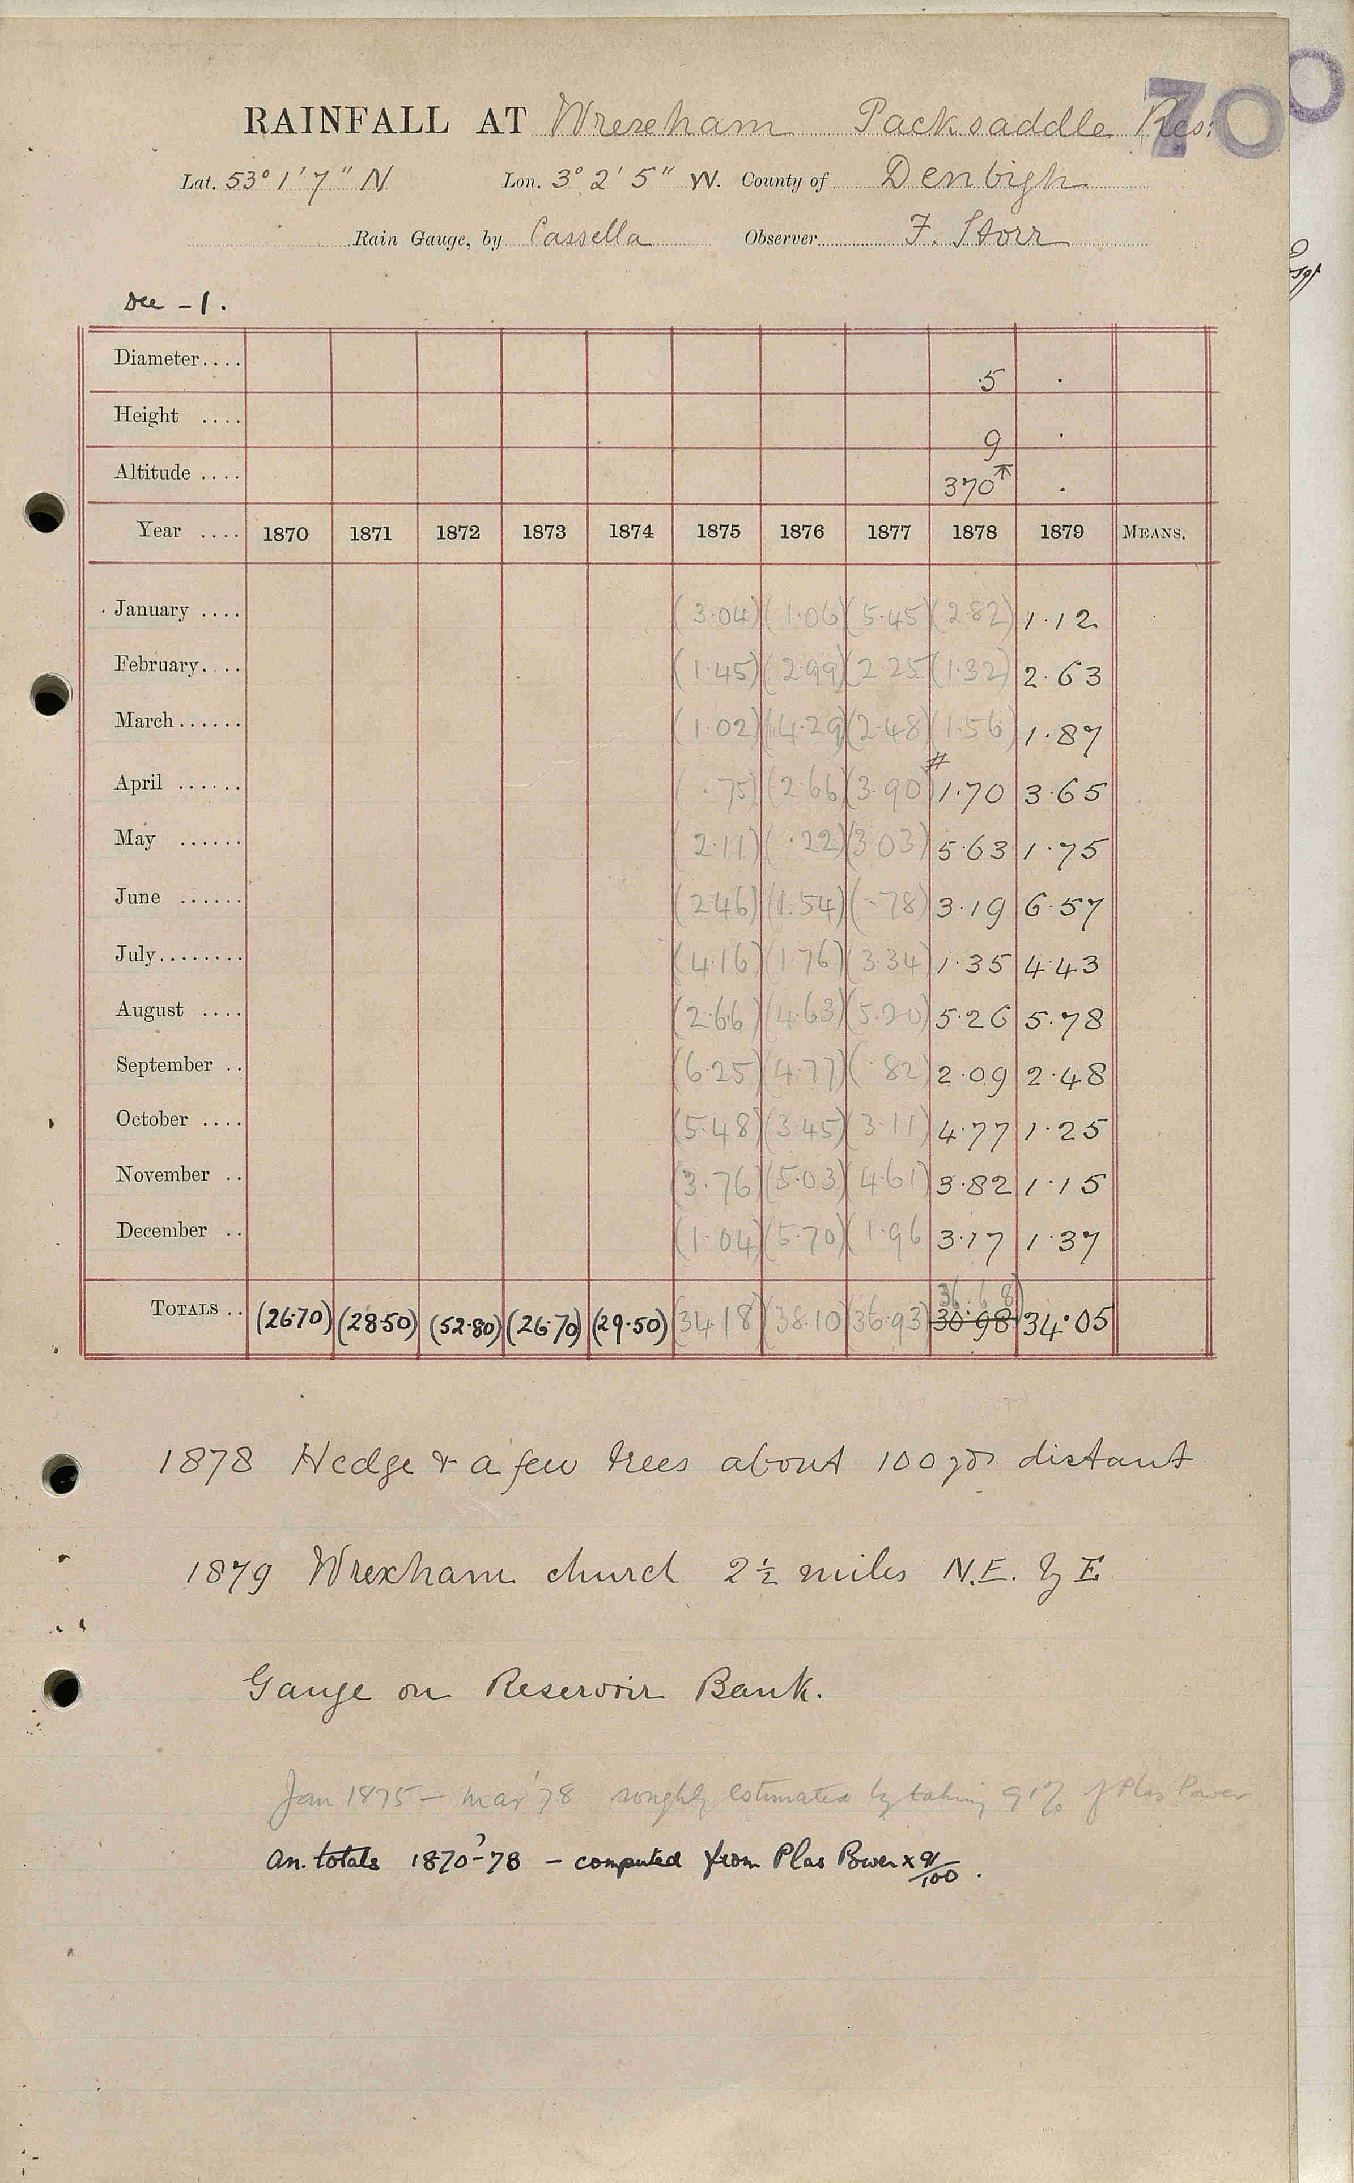 70
RAINFALL AT Wrexham Packsaddle Res.
Lat. 53° 1' 7" N Lon. 3° 2' 5" W. County of Denbigh
Rain Gauge, by Cassella Observer F. Storr
Dee - 1.
Diameter.... 5 .
Height .... 9 .
Altitude .... 370 T .
Year .... 1870 1871 1872 1873 1874 1875 1876 1877 1878 1879 MEANS.
January .... (3.04) (1.06) (5.45) (2.82) 1.12
February.... (1.45) (2.99) (2.25) (1.32) 2.63
March...... (1.02) (4.29) (2.48) (1.56) 1.87
April ...... ( .75) (2.66) (3.90) # 1.70 3.65
May ...... (2.11) ( .22) (3.03) 5.63 1.75
June ...... (2.46) (1.54) ( .78) 3.19 6.57
July........ (4.16) (1.76) (3.34) 1.35 4.43
August .... (2.66) (4.63) (5.20) 5.26 5.78
September .. (6.25) (4.77) ( .82) 2.09 2.48
October .... (5.48) (3.45) (3.11) 4.77 1.25
November .. (3.76) (5.03) (4.61) 3.82 1.15
December .. (1.04) (5.70) (1.96 3.17 1.37
36.68)
TOTALS .. (26.70) (28.50) (52.80) (26.70) (29.50) (34.18) (38.10) (36.93) 30.98 34.05
1878 Hedge & a few trees about 100 yds distant
1879 Wrexham church 2½ miles N.E. by E
Gauge on Reservoir Bank.
Jan 1875 - Mar '78 roughly estimated by taking 91% of Plas Power
An. totals 1870-78 - computed from Plas Power x 91/100.